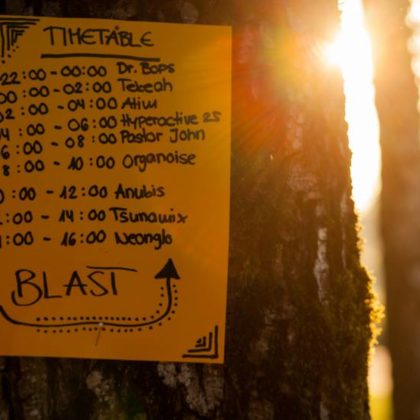 TIMETABLE
22:00 - 00:00 Dr. Bops
00:00 - 02:00 Tebeah
02:00 - 04:00
4:00 - 06:00 Hyperactive 25
6:00 - 08:00 Pastor John
8:00 - 10:00 Organoise
0:00 - 12:00 Anubis
:00 - 14:00 Tsunamix
:00 - 16:00 Neonglo
BLAST